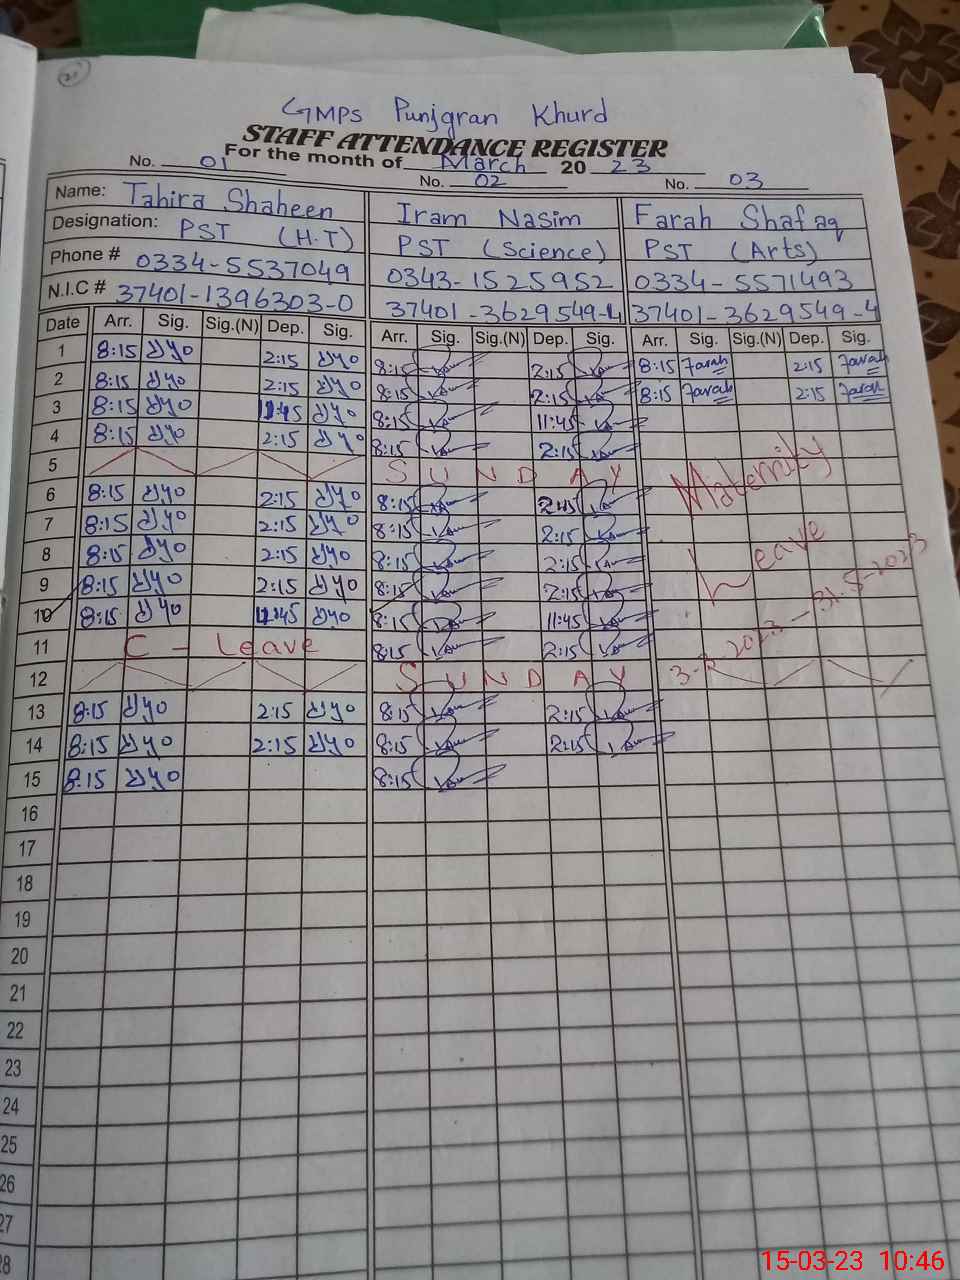 21
GMPS Punjgran Khurd
STAFF ATTENDANCE REGISTER
For the month of March 2023
No. 01 No. 02 No. 03
Name: Tahira Shaheen Iram Nasim Farah Shafaq
Designation: PST (H.T) PST (Science) PST (Arts)
Phone # 0334-5537049 0343-1525952 0334-5571493
N.I.C # 37401-1396303-0 37401-3629549-4 37401-3629549-4
Date Arr. Sig. Sig.(N) Dep. Sig. Arr. Sig. Sig.(N) Dep. Sig. Arr. Sig. Sig.(N) Dep. Sig.
1 8:15 2:15 8:15 2:15 8:15 Farah 2:15 Farah
2 8:15 2:15 8:15 2:15 8:15 Farah 2:15 Farah
3 8:15 11:45 8:15 11:45
4 8:15 2:15 8:15 2:15
5 SUNDAY Maternity
6 8:15 2:15 8:15
7 8:15 2:15 8:15 2:15
8 8:15 2:15 8:15 2:15 Leave
9 8:15 2:15 8:15 2:15
10 8:15 11:45 8:15 11:45
11 C - Leave 8:15 2:15 3-3-2023 - 31-5-2023
12 SUNDAY
13 8:15 2:15 8:15 2:15
14 8:15 2:15 8:15 2:15
15 8:15 8:15
16
17
18
19
20
21
22
23
24
25
26
27
28
15-03-23 10:46